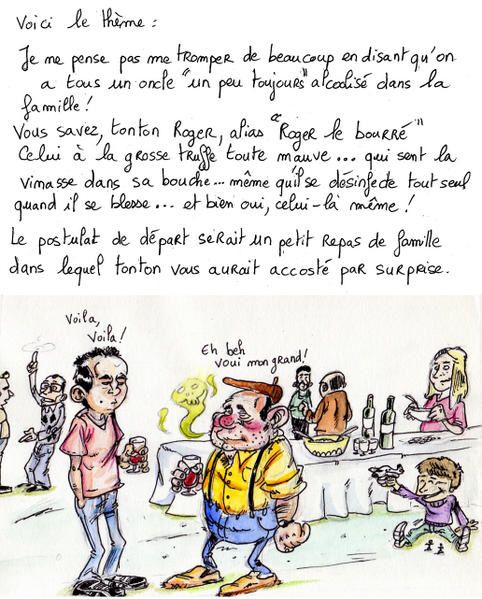 Voici le thème :
Je ne pense pas me tromper de beaucoup en disant qu'on
a tous un oncle "un peu toujours" alcoolisé dans la
famille !
Vous savez, tonton Roger, alias "Roger le bourré"
Celui à la grosse truffe toute mauve... qui sent la
vinasse dans sa bouche... même qu'il se désinfecte tout seul
quand il se blesse... et bien oui, celui-là même !
Le postulat de départ serait un petit repas de famille
dans lequel tonton vous aurait accosté par surprise.
Voila,
Voila !
Eh beh
voui mon grand !